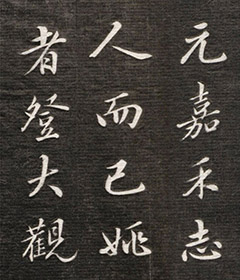 元嘉禾志
人而已姚
者登大觀